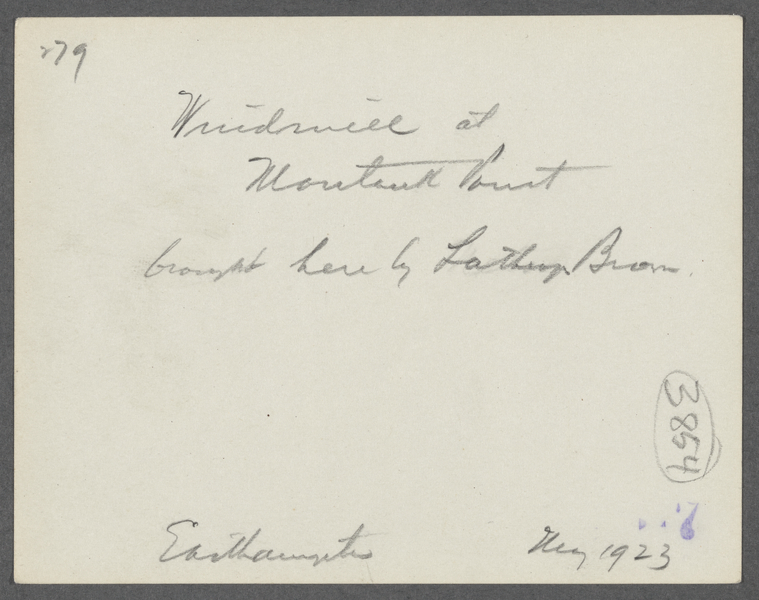 279
Windmill at
Montauk Point
brought here by Lathrop Brown.
3854
7
Easthampton May 1923